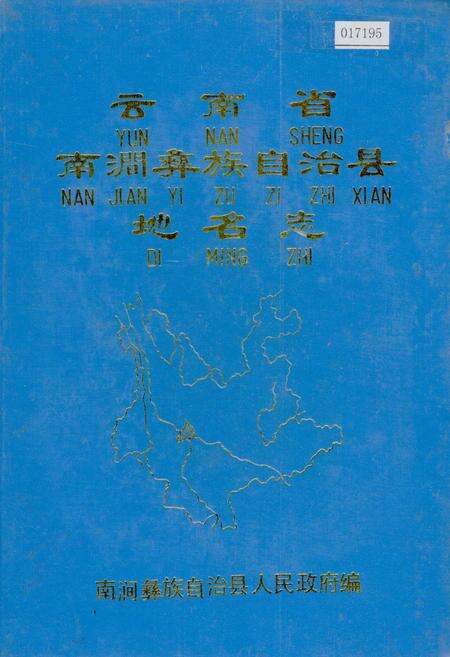 017195
云南省
YUN NAN SHENG
南涧彝族自治县
NAN JIAN YI ZU ZI ZHI XIAN
地名志
DI MING ZHI
南涧彝族自治县人民政府编